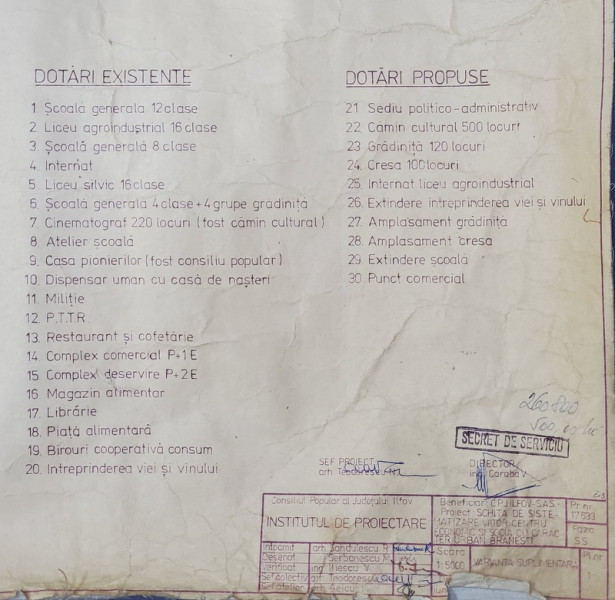 DOTĂRI EXISTENTE
1. Școală generala 12 clase
2. Liceu agroindustrial 16 clase
3. Școală generală 8 clase
4. Internat
5. Liceu silvic 16 clase
6. Școală generală 4 clase + 4 grupe gradiniță
7. Cinematograf 220 locuri (fost cămin cultural)
8. Atelier școală
9. Casa pionierilor (fost consiliu popular)
10. Dispensar uman cu casă de nașteri
11. Miliție
12. P.T.T.R.
13. Restaurant și cofetărie
14. Complex comercial P+1E
15. Complex deservire P+2E
16. Magazin alimentar
17. Librărie
18. Piață alimentară
19. Birouri cooperativă consum
20. Intreprinderea viei și vinului
DOTĂRI PROPUSE
21. Sediu politico-administrativ
22. Cămin cultural 500 locuri
23. Grădiniță 120 locuri
24. Cresa 100 locuri
25. Internat liceu agroindustrial
26. Extindere intreprinderea viei și vinului
27. Amplasament grădinița
28. Amplasament cresa
29. Extindere școală
30. Punct comercial
260.800
SECRET DE SERVICIU
ȘEF PROIECT
arh. Teodorescu N.
DIRECTOR
ing. Caraba V.
Consiliul Popular al Județului Ilfov
INSTITUTUL DE PROIECTARE
Beneficiar: C.P.J. ILFOV-S.A.S.
Proiect: SCHIȚA DE SISTE-
MATIZARE
ECONOMIC ȘI SOCIAL CU CARAC
TER URBAN BRĂNEȘTI
Pr. nr.
17.633
Faza
S.S.
Intocmit arh. Săndulescu R.
Desenat Șerbănescu M.
Verificat ing. Iliescu V.
Sef colectiv arh. Teodorescu
Sef atelier
Scara
1:5000
VARIANTA SUPLIMENTARĂ
Pl. nr.